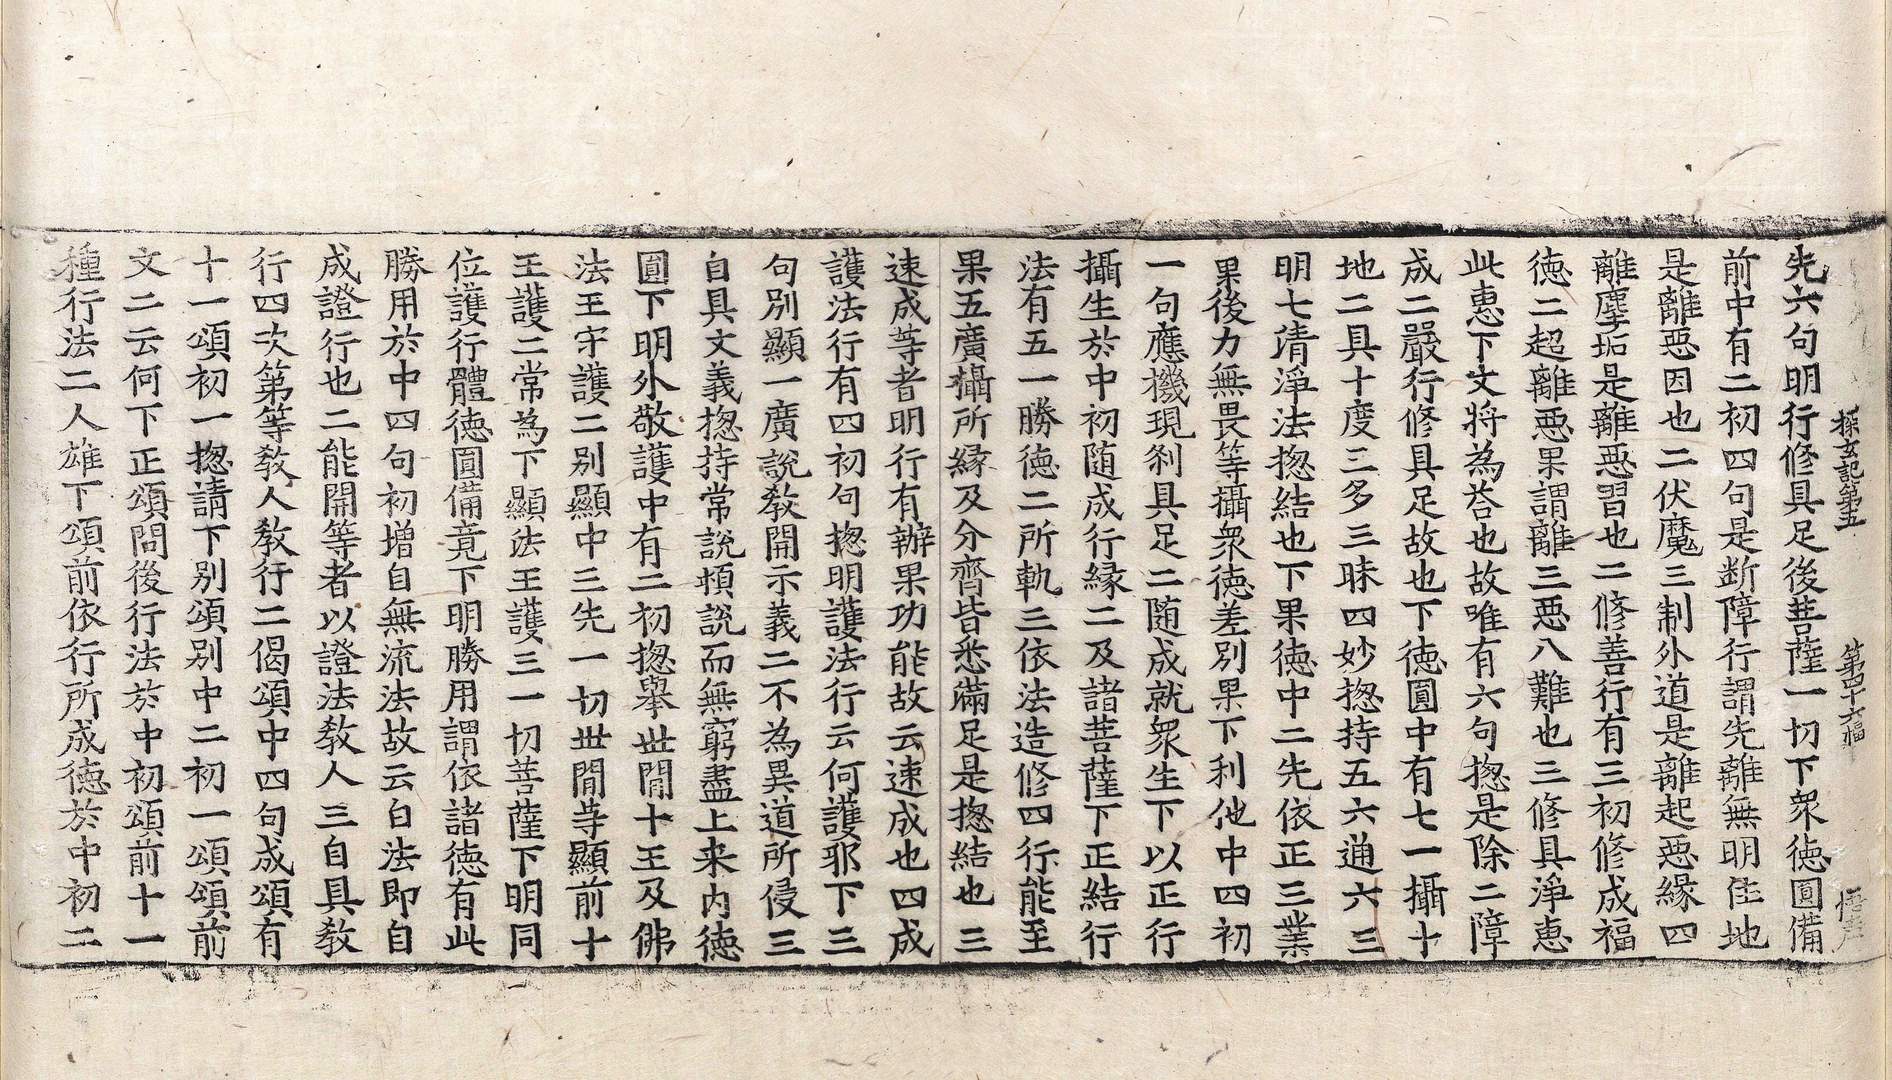 探玄記第五 第四十六幅
先六句明行修具足後菩薩一切下衆徳圓備
前中有二初四句是断障行謂先離無明住地
是離惡因也二伏魔三制外道是離起惡緣四
離塵垢是離惡習也二修善行有三初修成福
徳二超離惡果謂離三惡八難也三修具淨恵
此惠下文將為荅也故唯有六句揔是除二障
成二嚴行修具足故也下徳圓中有七一攝十
地二具十度三多三昧四妙揔持五六通六三
明七清淨法揔結也下果徳中二先依正三業
果後力無畏等攝衆徳差別果下利他中四初
一句應機現刹具足二随成就衆生下以正行
攝生於中初随成行緣二及諸菩薩下正結行
法有五一勝徳二所軌三依法造修四行能至
果五廣攝所緣及分齊皆悉滿足是揔結也三
速成等者明行有辦果功能故云速成也四成
護法行有四初句揔明護法行云何護耶下三
句別顯一廣說教開示義二不為異道所侵三
自具文義揔持常說頓說而無窮盡上来内徳
圓下明外敬護中有二初揔舉世間十王及佛
法王守護二別顯中三先一切世間等顯前十
王護二常為下顯法王護三一切菩薩下明同
位護行體徳圓備竟下明勝用謂依諸徳有此
勝用於中四句初增自無流法故云白法即自
成證行也二能開等者以證法教人三自具教
行四次第等教人教行二偈頌中四句成頌有
十一頌初一揔請下別頌別中二初一頌頌前
文二云何下正頌問後行法於中初頌前十一
種行法二人雄下頌前依行所成徳於中初二